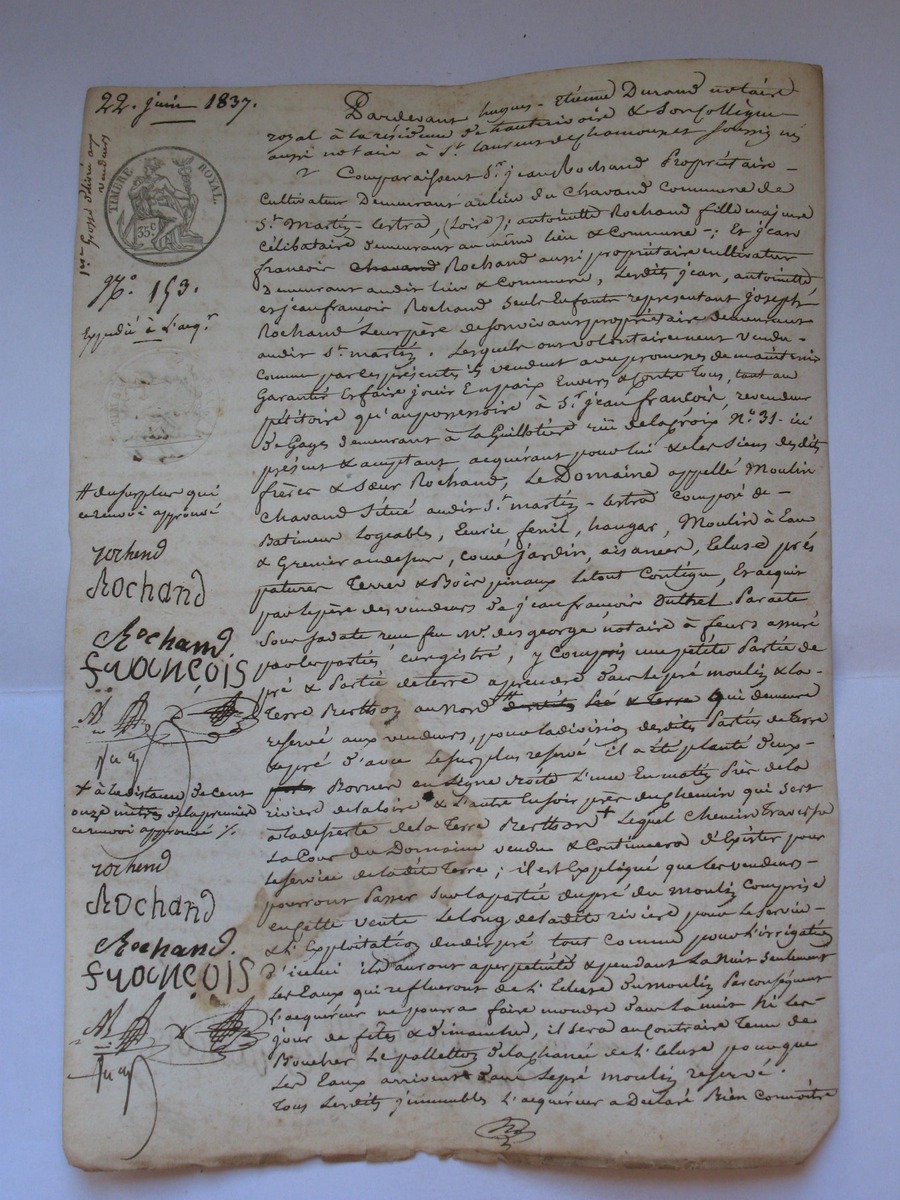 22. juin 1837.
1ère Grosse délivrée aux
vendeurs
TIMBRE ROYAL.
35c
N.o 153.
Expédié à l'acq.r
# du surplus qui
ce renvoi approuvé
rochend
Rochand
Rochand.
françois
+ à la distance de cent
onze mètres de la première
ce renvoi approuvé ./.
rochend
Rochand
Rochand.
françois
Pardevant hugues-Etienne Durand notaire
royal à la résidence de hauterivoire & son collègue
aussi notaire à St. laurent de chamousset soussignés
Comparaissent Sr. jean Rochand Propriétaire-
Cultivateur Demeurant au lieu du Chavand Commune de
St. Martin-lestra, (Loire); antoinette Rochand fille majeure
Célibataire demeurant au même lieu & Commune-; Et jean
francois chavand Rochand aussi propriétaire cultivateur
Demeurant audit lieu & Commune, Lesdits jean, antoinette
et jean francois Rochand Seuls Enfants représentant joseph
Rochand Leur père de son vivant propriétaire demeurant
audit St. martin. Lesquels ont volontairement vendu-
Comme par ces présentes ils vendent avec promesses de maintenir
Garantir Et faire jouir En paix Envers & Contre Tous, tant au
pétitoire qu'au possessoire à Sr. jean francois, revendeur
de Gages demeurant à la Guillotière rue de la croix N.o 31- ici
présent & acceptant acquérant pour lui & les siens desdits
frères & Sœur Rochand, Le Domaine appellé Moulin
Chavand Situé audit St. martin-lestra composé de-
Batimens Logeables, Ecurie, fenil, hangar, Moulin à Eau
& Grenier au dessus, cour, jardin, aisances, Ecluse prés
patures Terres & Bois pinaux Le tout Contigu, Et acquis
par le père des vendeurs de jean francois Duthel Par acte
Sous sa date reçu feu Me. des george notaire à feurs assuré
par les parties enregistré, y Compris une petite Partie de
pré & Partie de terre à prendre dans le pré moulin & la-
Terre Berthon au Nord # Pré & Terre qui demeure
reservé aux vendeurs, pour la division desdites Parties de Terre
& pré d'avec Le surplus reservé il a été planté deux-
Bornes en Ligne droite L'une En matin Près de la
rivière de la loire & l'autre En soir près du Chemin qui sert
à la desserte de la Terre Berthon + Lequel Chemin Traverse
La Cour du Domaine vendu & Continuera d'Exister pour
le service de ladite Terre; il est Expliqué que les vendeurs-
pourront Passer sur la partie du pré du Moulin Comprise
en Cette vente Le long de ladite rivière pour le Service-
& L'Exploitation dudit pré tout Comme pour L'irrigation
d'icelui ils auront à perpétuité & pendant La Nuit Seulement
Les Eaux qui reflueront de L'Ecluse du moulin Par conséquent
L'acquéreur ne pourra faire moudre dans la nuit Ni les-
jour de fêtes & dimanche, il sera au Contraire Tenu de
Boucher Le palletton de la chanée de L'Ecluse pour que
Les Eaux arrivent dans Le pré moulin reservé.
Tous Lesdits jmmeubles L'acquéreur a Déclaré Bien Connoitre